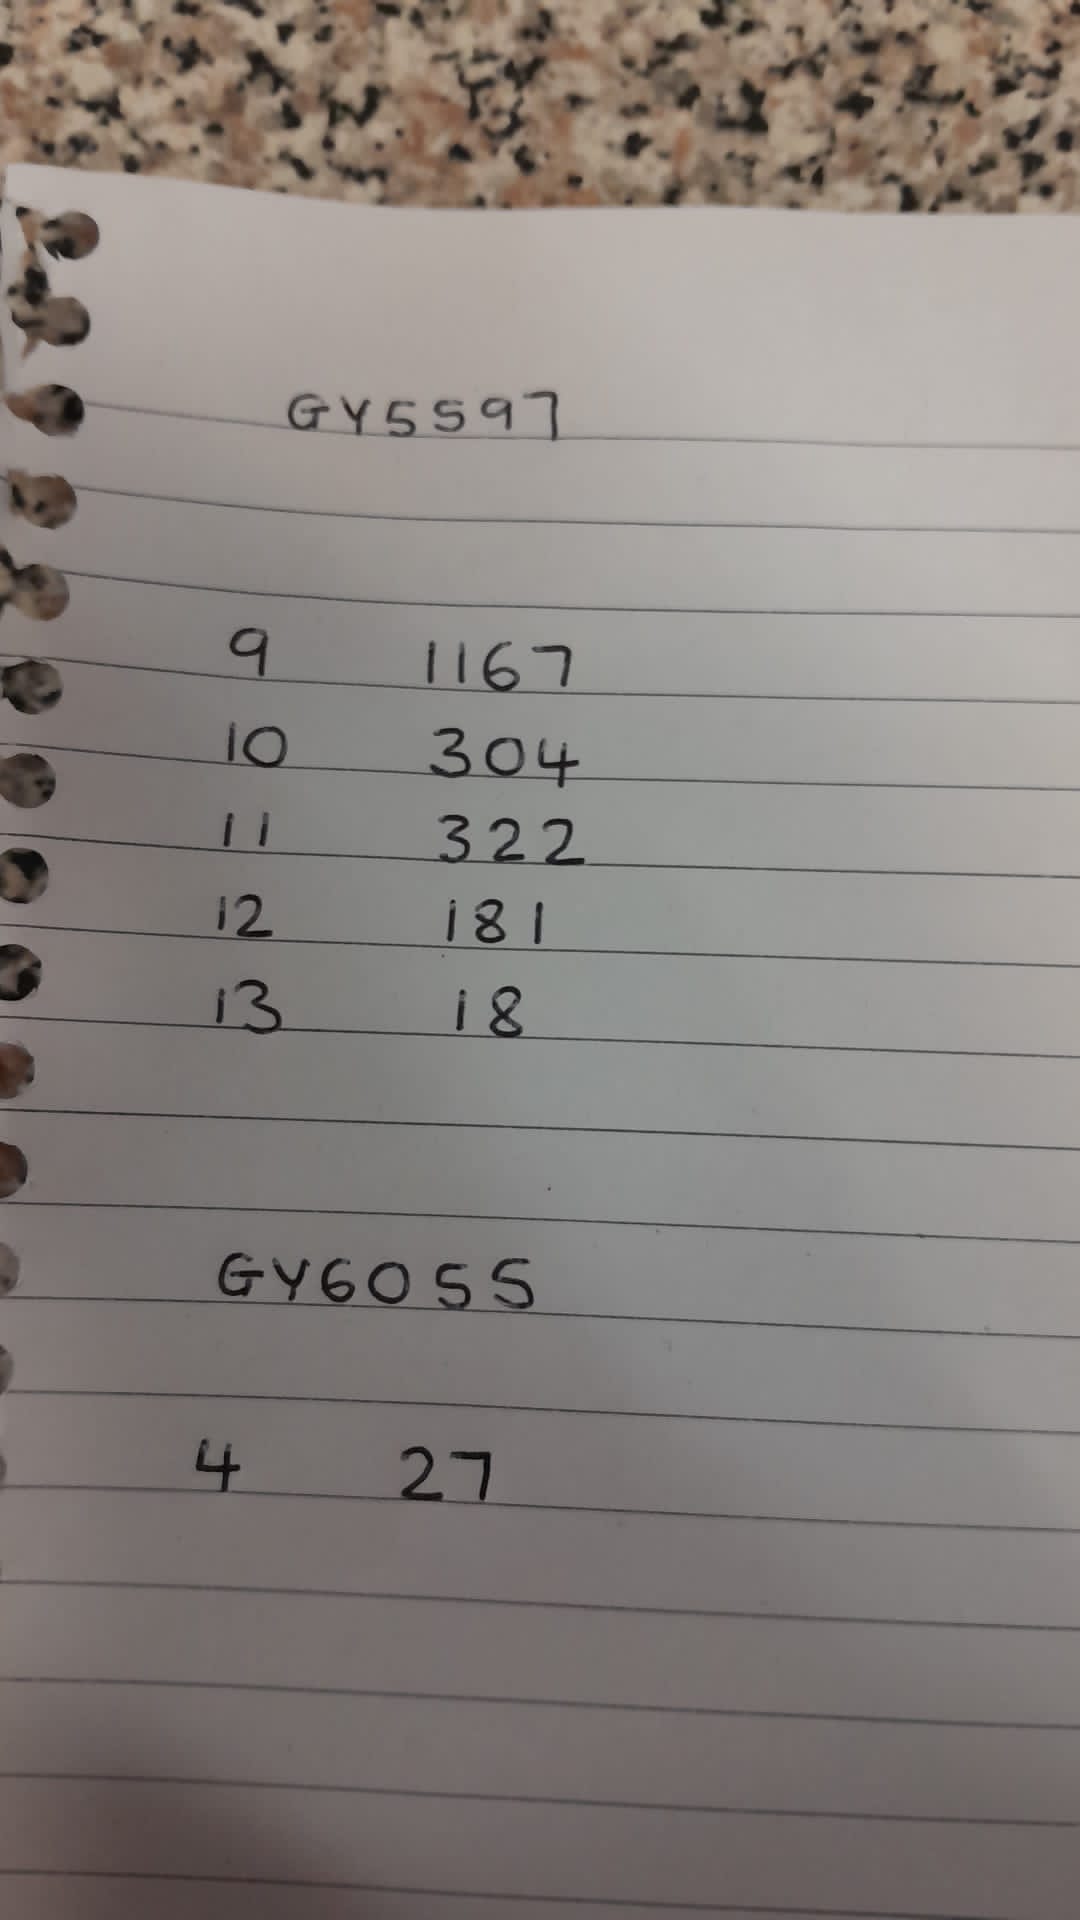 GY5597
9 1167
10 304
11 322
12 181
13 18
GY6055
4 27